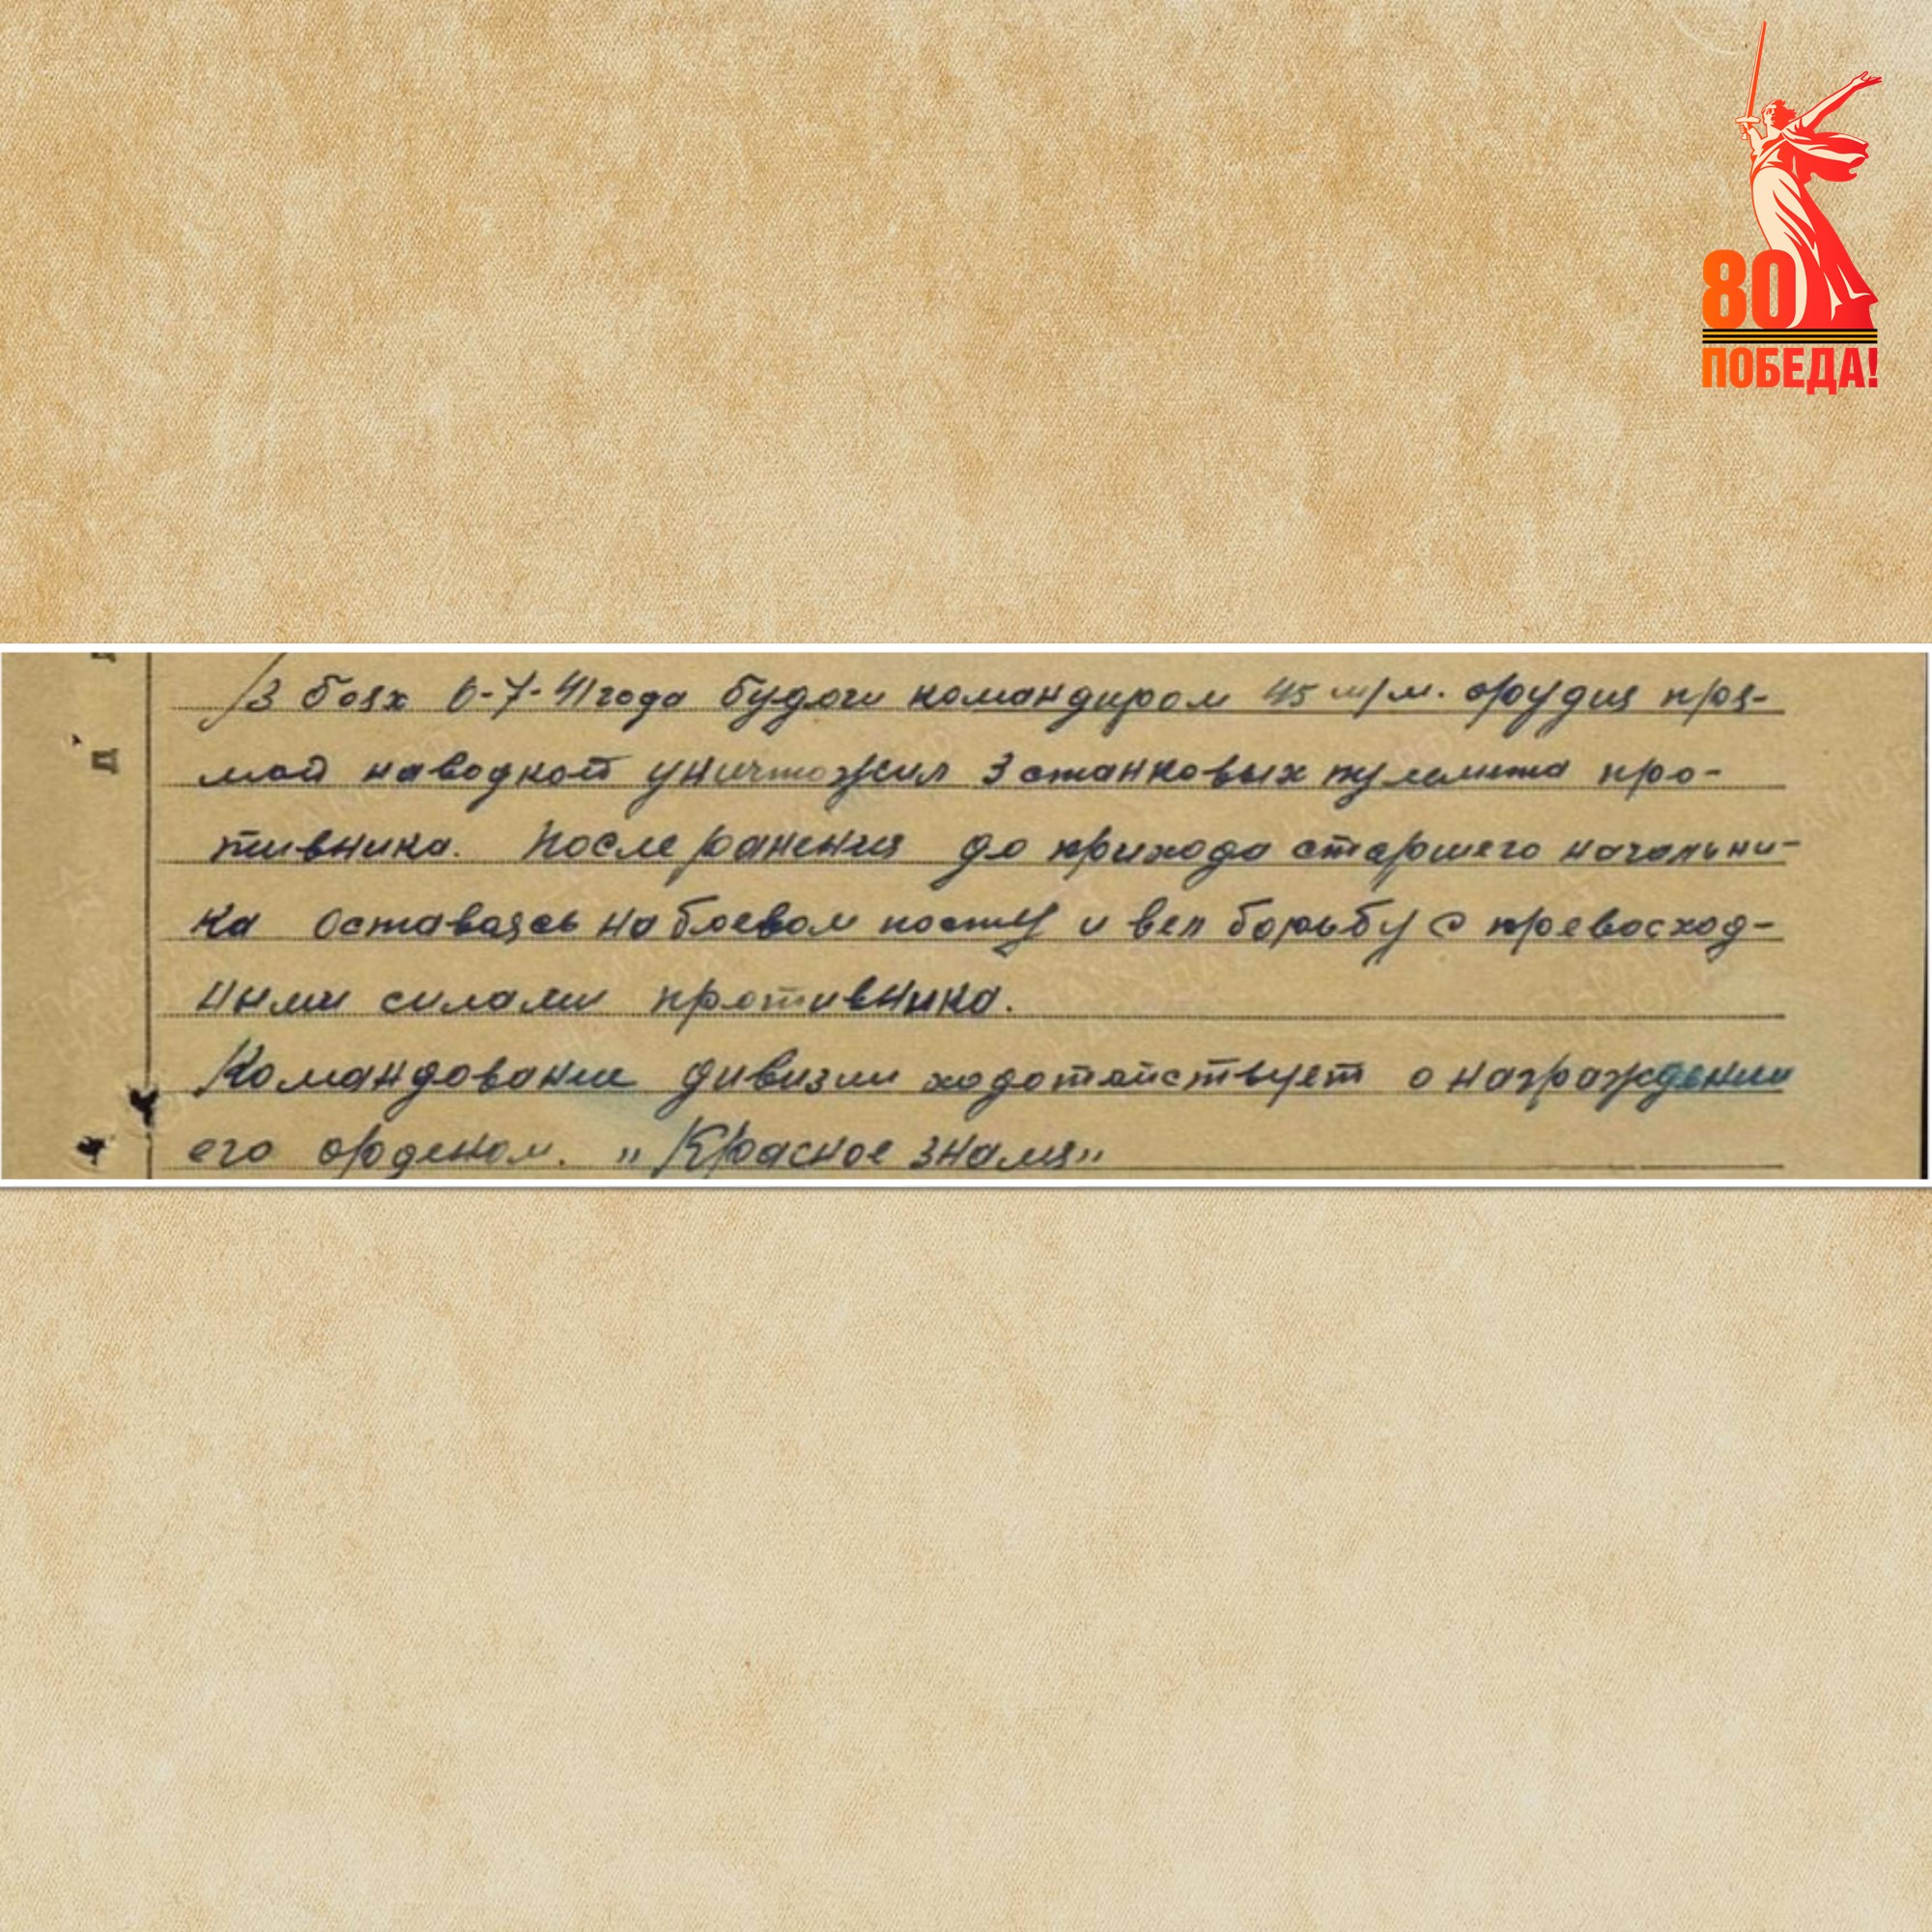 80
ПОБЕДА!
В боях 6-7-41 года будучи командиром 45 м/м. орудия пря-
мой наводкой уничтожил 3 станковых пулемета про-
тивника. После ранения до прихода старшего начальни-
ка оставаясь на боевом посту и вел борьбу с превосход-
ными силами противника.
Командование дивизии ходотайствует о награждении
его орденом. „Красное знамя"